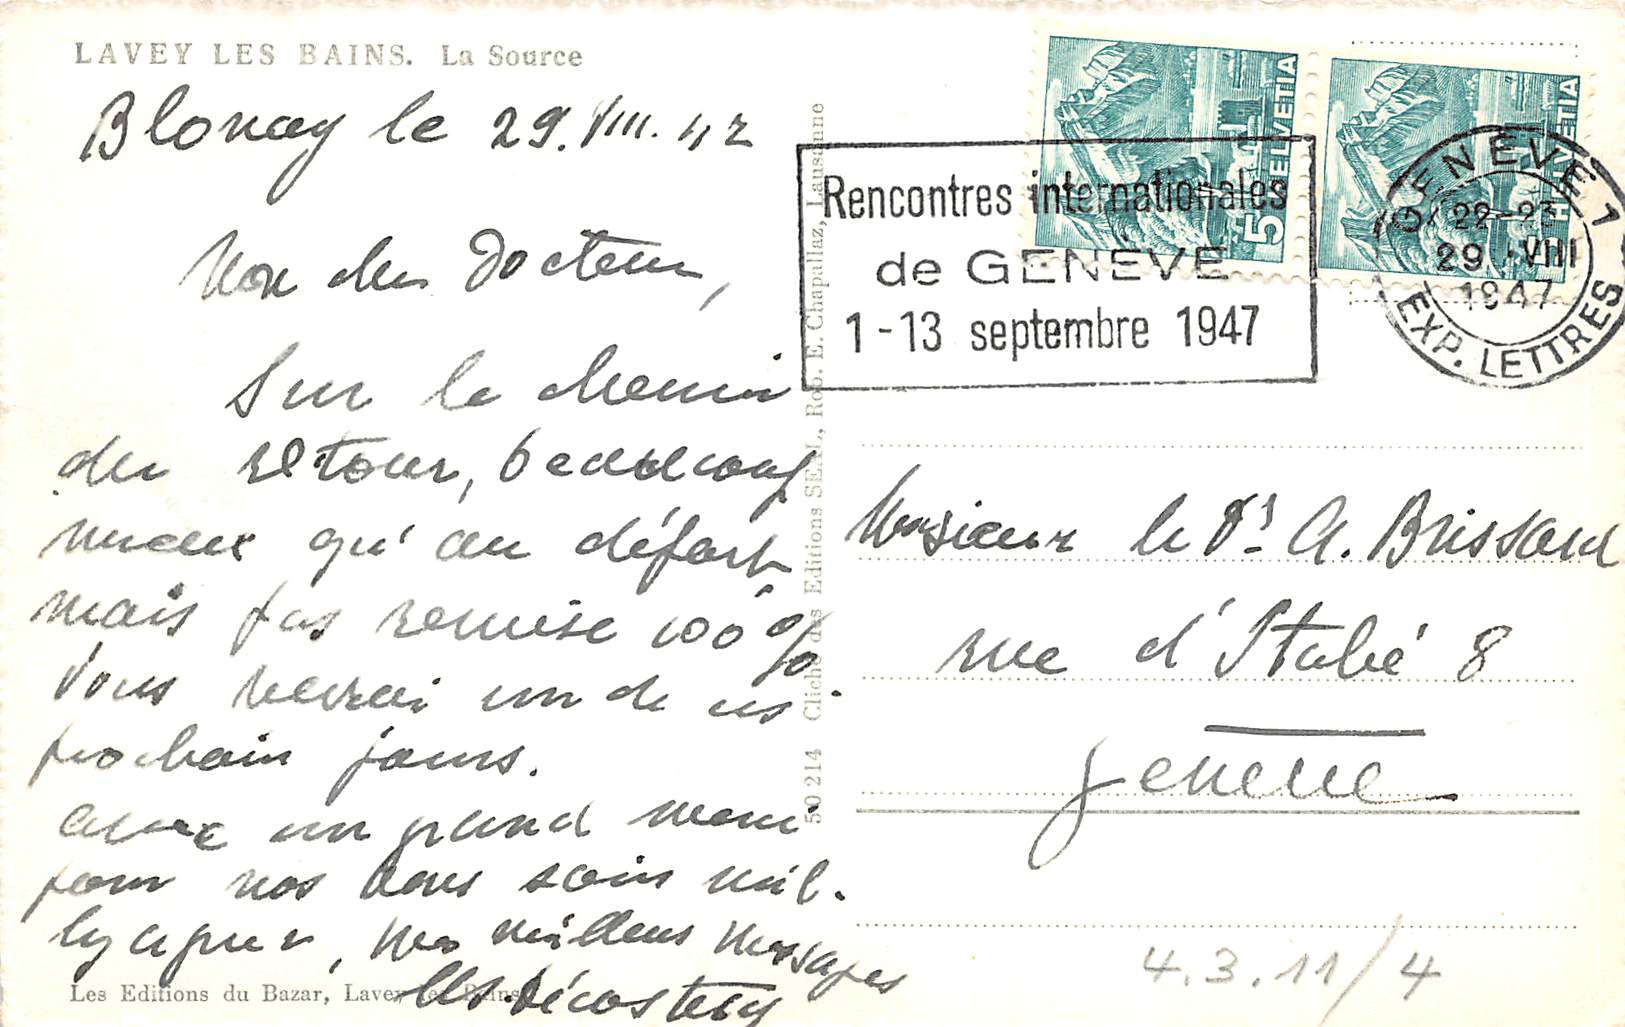 LAVEY LES BAINS. La Source
Blonay le 29. VIII. 47
Mon cher Docteur,
Sur le chemin
du retour, beaucoup
mieux qu'au départ,
mais pas remise 100%
Vous reverrai un de ces
prochain jours.
avec un grand merci
pour vos bons soins
mes meilleurs messages
Les Editions du Bazar, Lavey les Bains
50 214 Cliché des Editions SEAL, Rob. E. Chapallaz, Lausanne
HELVETIA 5
HELVETIA
Rencontres internationales
de GENÈVE
1-13 septembre 1947
GENÈVE 1
22-23
29.VIII
1947
EXP. LETTRES
Monsieur le Dr A. Brissard
rue d'Italie 8
Genève
4.3.11/4